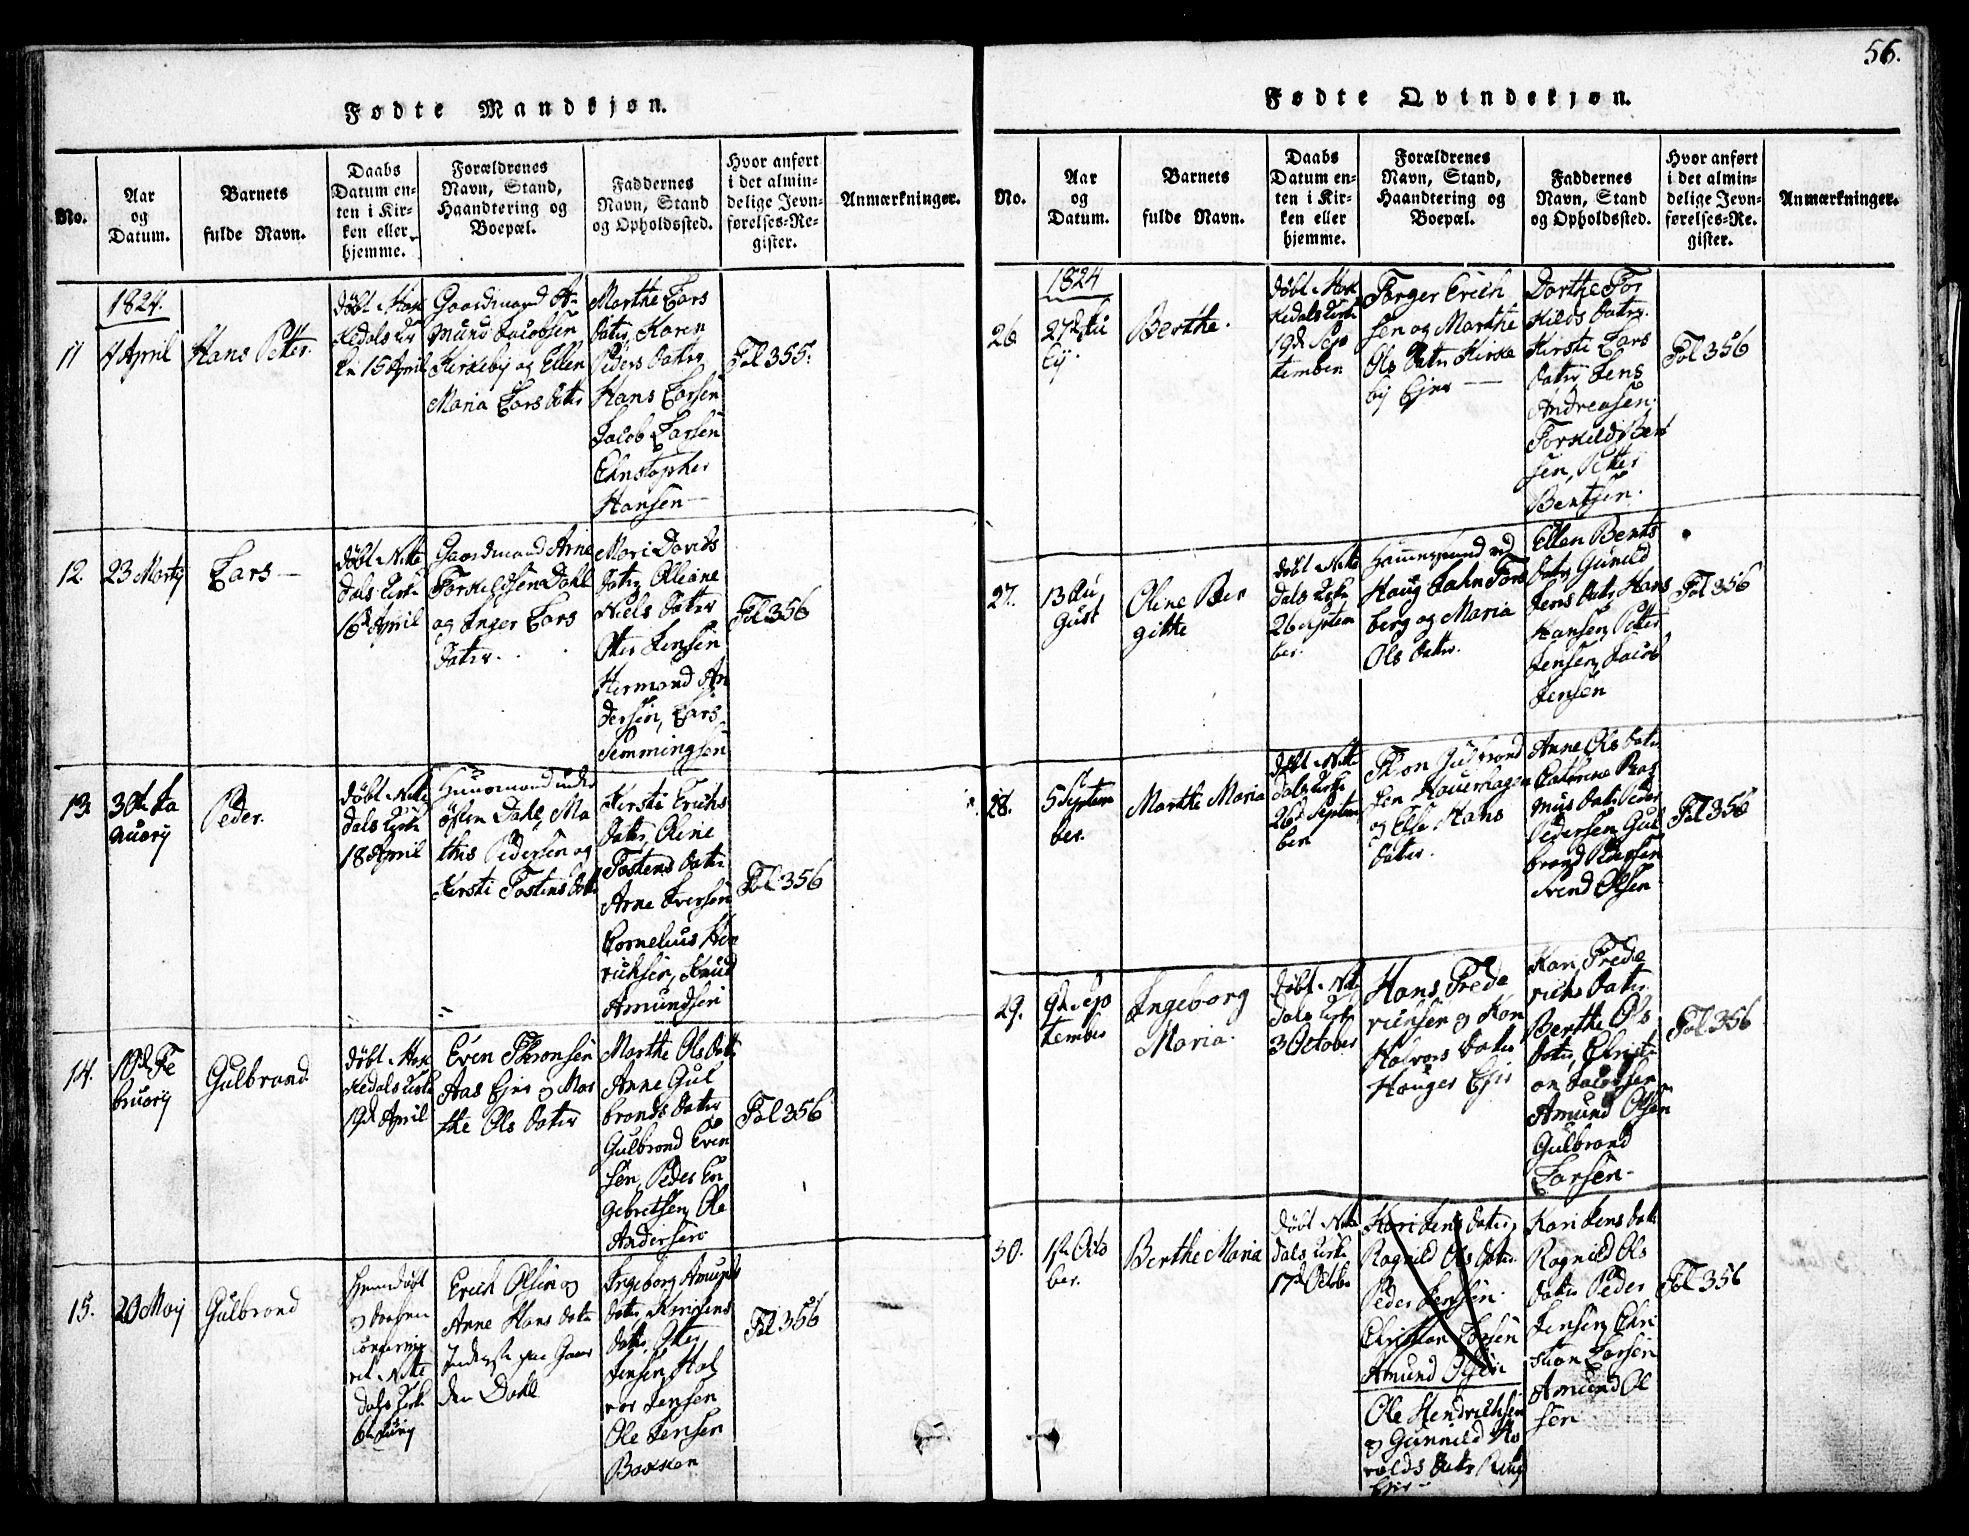 56.
Fødte Mandkjøn.
No.
Aar
og
Datum.
Barnets
fulde Navn.
Daabs
Datum en-
ten i Kir-
ken eller
hjemme.
Forældrenes
Navn, Stand,
Haandtering og
Boepæl.
Faddernes
Navn, Stand
og Opholdssted.
Hvor anført
i det almin-
delige Jevn-
førelses-Re-
gister.
Anmærkninger.
1824.
11
4 April
Hans Petter.
døbt i Hak
kedals Kir
ke 15 April
Gaardmand A-
mund Jacobsen
Kirkeby og Ellen
Maria Lars datter
Marthe Lars
datter, Karen
Peders datter
Hans Larsen
Jacob Larsen
Christopher
Hansen
Fol 355.
12.
23 Marty
Lars
døbt i Nitte
dals Kirke
16d April
Gaardmand Arne
Torkildsen Dahl
og Inger Lars
datter.
Mari Davids
datter Olleane
Niels datter
Otter Jensen
Hermand An
dersen, Lars
Semmingsen
Fol 356
13.
30te Ja
nuary
Peder.
døbt i Nitte
dals Kirke
18 April
Huusmand under
østen Dahl, Ma
this Pedersen og
Kirsti Tostens datter
Kirsti Erichs
datter, Oline
Tostens datter
Arne Iversen
Cornelius Hen
richsen, Knud
Amundsen
Fol 356
14.
19d Fe
bruary
Gulbrand
døbt i Hak
kedals Kirke
19d April
Even Thronsen
Aas Ejer og Mar
the Ols datter
Marthe Ols datter
Anne Gul
brands datter
Gulbrand Even
sen, Peder En
gebretsen, Ole
Andersen
Fol 356
15.
20 May
Gulbrand
hjemdøbt
og daaben
confirme
ret i Nitte
dals Kirke
Erich Olsen og
Anne Hans datter
Inderste paa Gaar
den Dahl
Ingeborg Amunds
datter, Jens
datter, Otter
Jensen, Hal
vor Jensen
Ole Jensen
Bakken
Fol 356
Fødte Qvindekjøn.
No.
Aar
og
Datum.
Barnets
fulde Navn.
Daabs
Datum en-
ten i Kir-
ken eller
hjemme.
Forældrenes
Navn, Stand,
Haandtering og
Boepæl.
Faddernes
Navn, Stand
og Opholdssted.
Hvor anført
i det almin-
delige Jevn-
førelses-Re-
gister.
Anmærkninger.
1824
26
27de Ju
ly.
Berthe.
døbt i Hak
kedals Kirke
19d Sep
tember
Torger Erich
sen og Marthe
Ols datter Kirke
by Ejer
Dorthe Tor
kilds datter.
Kirsti Lars
datter, Jens
Andreasen.
Torkild Bent
sen, Petter
Bentsen.
Fol 356
27.
13 Au
gust
Oline Ber
gitte
døbt i Nitte
dals Kirke
26 Septem
ber.
Huusmand ved
Haug Jahn Fors
berg og Maria
Ols datter.
Ellen Bents
datter Gunild
Jens datter Hans
Hansen, Petter
Jensen, Jacob
Jensen
Fol 356
28.
5 Septem
ber.
Marthe Maria
døbt i Nitte
dals Kirke
26d Septem
ber
Thron Gulbrand
sen Hauerhagen
og Else Hans
datter.
Anne Ols datter
Cathrine Ras
mus datter Peder
Pedersen Gul
brand Pedersen
Svend Olsen
Fol 356
29.
9de Sep
tember
Ingeborg
Maria.
døbt i Nitte
dals Kirke
3 October
Hans Frede
richsen og Kari
Halvors datter
Hauger Ejer
Kari Frede
richs datter.
Berthe Ols
datter, Christi
an Jacobsen
Amund Olsen
Gulbrand
Larsen
Fol 356
30.
1ste Octo
ber.
Berthe Maria
døbt i Nitte
dals Kirke
17d Octobr
Kari Jens datter,
Ragnild Ols datter
Peder Jensen.
Christian Larsen
Amund Olsen
Ole Hendrichsen
og Gunnild Ha
ralds datter
Ejer
Kari Jens datter
Ragnild Ols
datter Peder
Jensen, Chri
stian Larsen
Amund Ol
sen
Fol 356